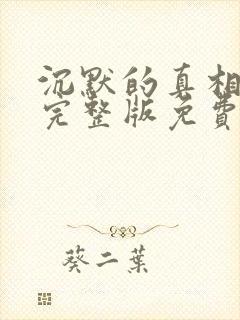 沉默的真相
完整版免费
葵二葉